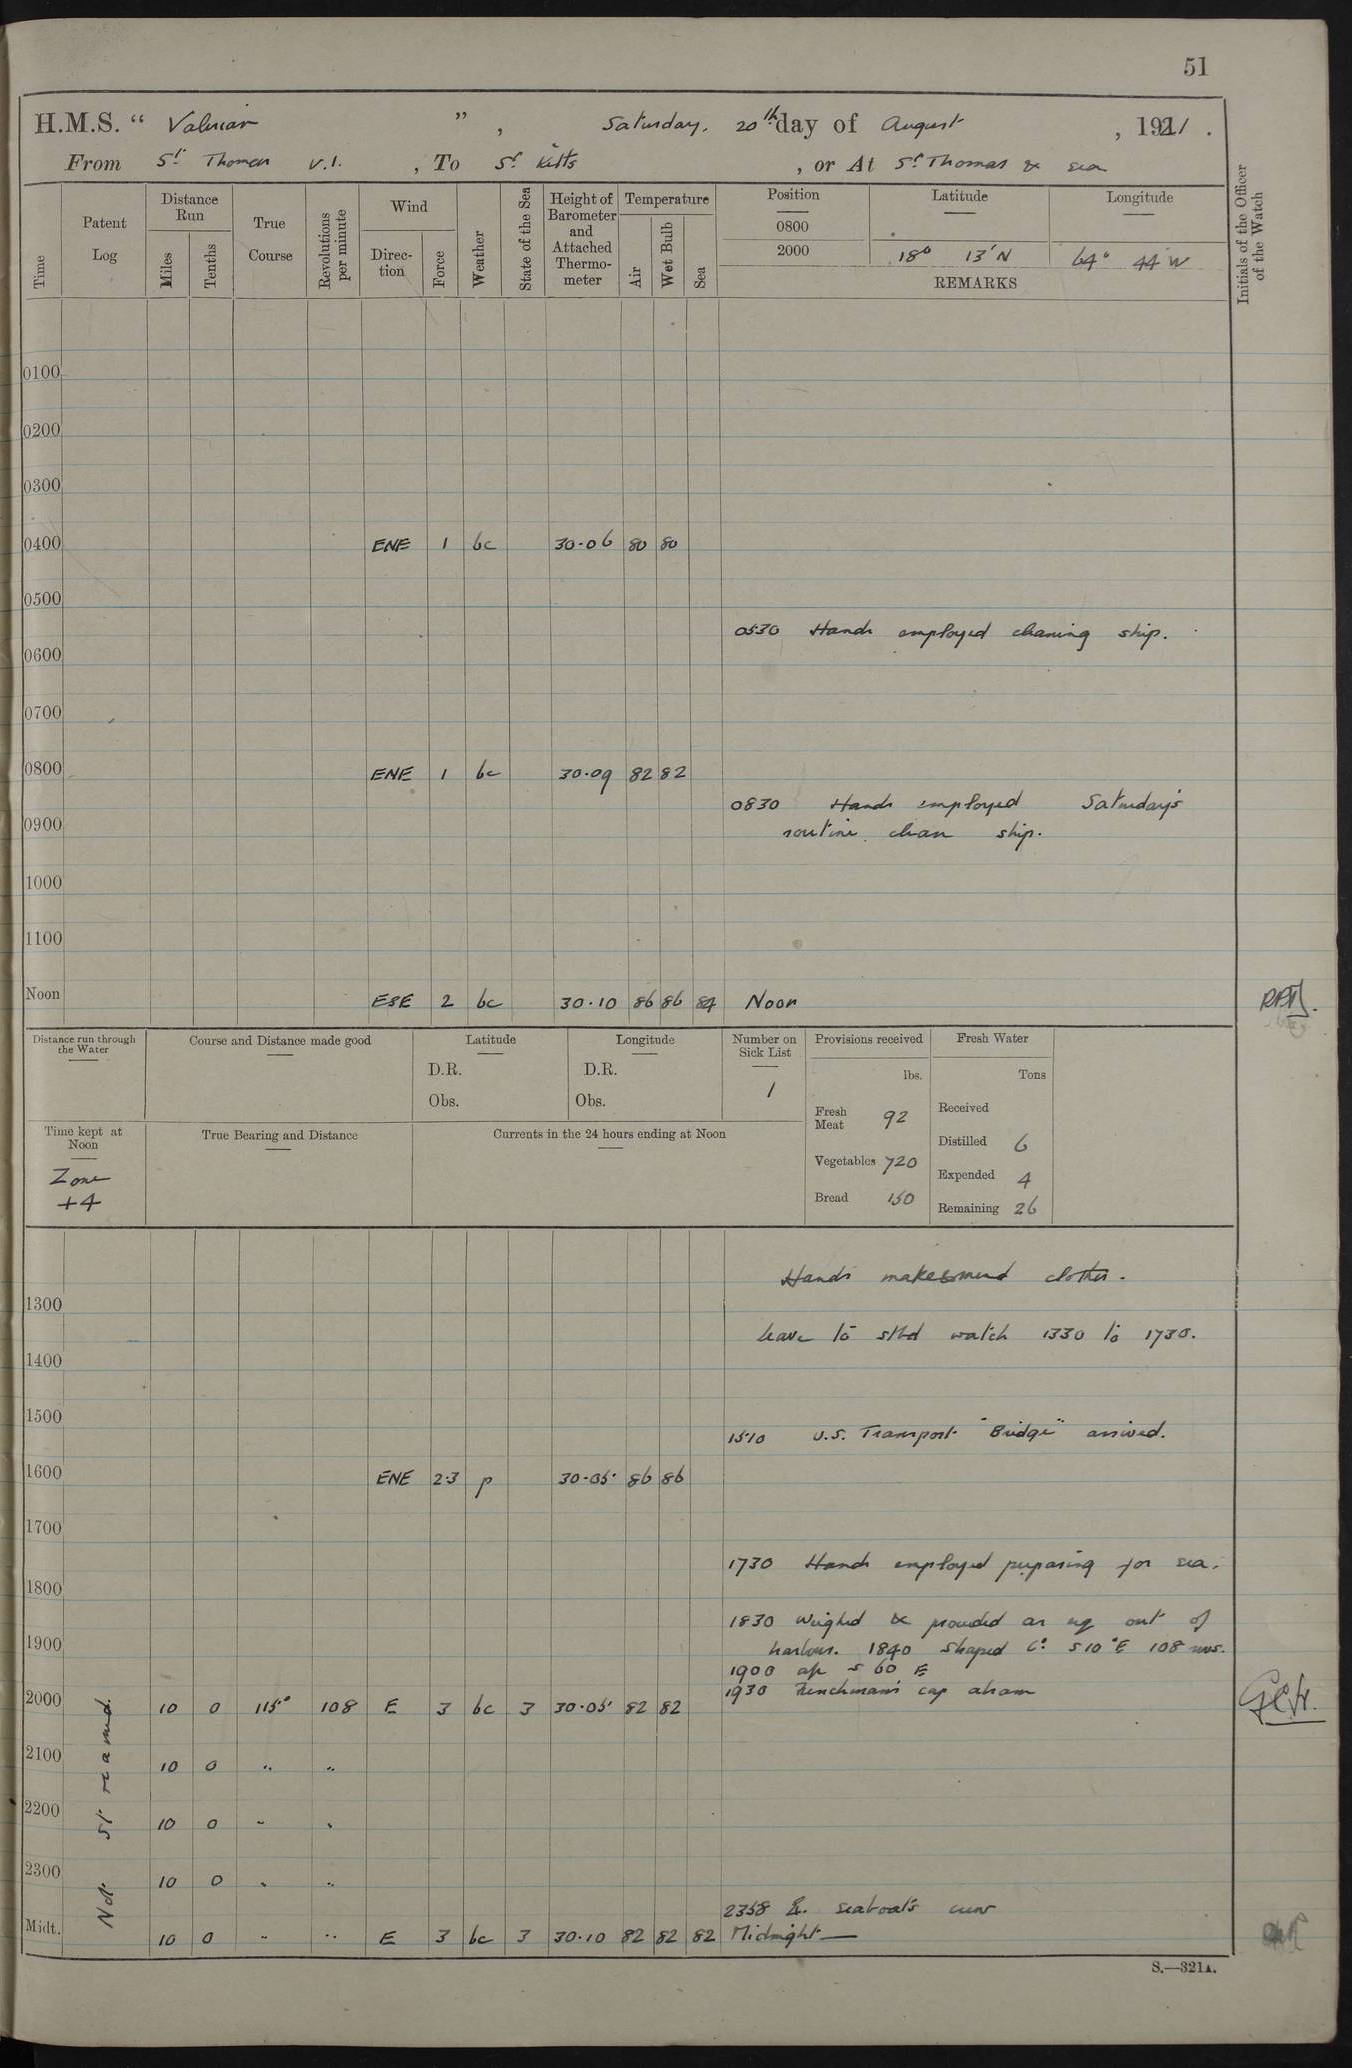 51
H.M.S. “ Valerian ” , Saturday, 20th day of August , 1921 .
From St Thomas V.I. , To St Kitts , or At St Thomas & sea
Time
Patent Log
Distance Run
Miles
Tenths
True Course
Revolutions per minute
Wind
Direction
Force
Weather
State of the Sea
Height of Barometer and Attached Thermometer
Temperature
Air
Wet Bulb
Sea
Position
Latitude
Longitude
0800
2000 18° 13' N 64° 44' W
REMARKS
Initials of the Officer of the Watch
0100
0200
0300
0400 ENE 1 bc 30.06 80 80
0500
0530 Hands employed cleaning ship.
0600
0700
0800 ENE 1 bc 30.09 82 82
0830 Hands employed Saturday's
0900 routine clean ship.
1000
1100
Noon ESE 2 bc 30.10 86 86 84 Noon
Distance run through the Water
Course and Distance made good
Latitude
D.R.
Obs.
Longitude
D.R.
Obs.
Number on Sick List
1
Provisions received
lbs.
Fresh Meat 92
Vegetables 720
Bread 150
Fresh Water
Tons
Received
Distilled 6
Expended 4
Remaining 26
Time kept at Noon
Zone
+4
True Bearing and Distance
Currents in the 24 hours ending at Noon
Hands make & mend clothes.
1300
Leave to stbd watch 1330 to 1730.
1400
1500
1510 U.S. Transport "Bridge" arrived.
1600 ENE 2.3 p 30.05 86 86
1700
1730 Hands employed preparing for sea.
1800
1830 Weighed & proceeded as req out of
1900 harbour. 1840 Shaped Co S10°E 108 revs.
1900 a/c S 60 E
1930 Frenchman's cap abeam
2000 10 0 115° 108 E 3 bc 3 30.05 82 82
Not streamed.
2100 10 0 " "
2200 10 0 " "
2300 10 0 " "
2358 Ex. seaboat's crew
Midt. 10 0 " " E 3 bc 3 30.10 82 82 82 Midnight
S.—321A.